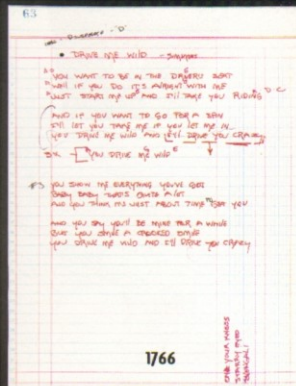 63
DRIVE ME WILD
YOU WANT TO BE IN THE DRIVERS SEAT
WELL IF YOU DO IT'S ALRIGHT WITH ME
JUST START ME UP AND I'LL TAKE YOU RIDING
D C
AND IF YOU WANT TO GO FOR A
I'LL LET YOU TAKE ME IF YOU LET ME IN
YOU DRIVE ME WILD AND I'LL DRIVE YOU CRAZY
3X YOU DRIVE ME WILD
#3 YOU SHOW ME EVERYTHING YOU'VE GOT
BABY BABY THAT'S QUITE A LOT
AND YOU THINK IT'S JUST ABOUT TIME FOR YOU
AND YOU SAY YOU'LL BE MINE FOR A WHILE
YOU DRIVE ME WILD AND I'LL DRIVE YOU CRAZY
1766